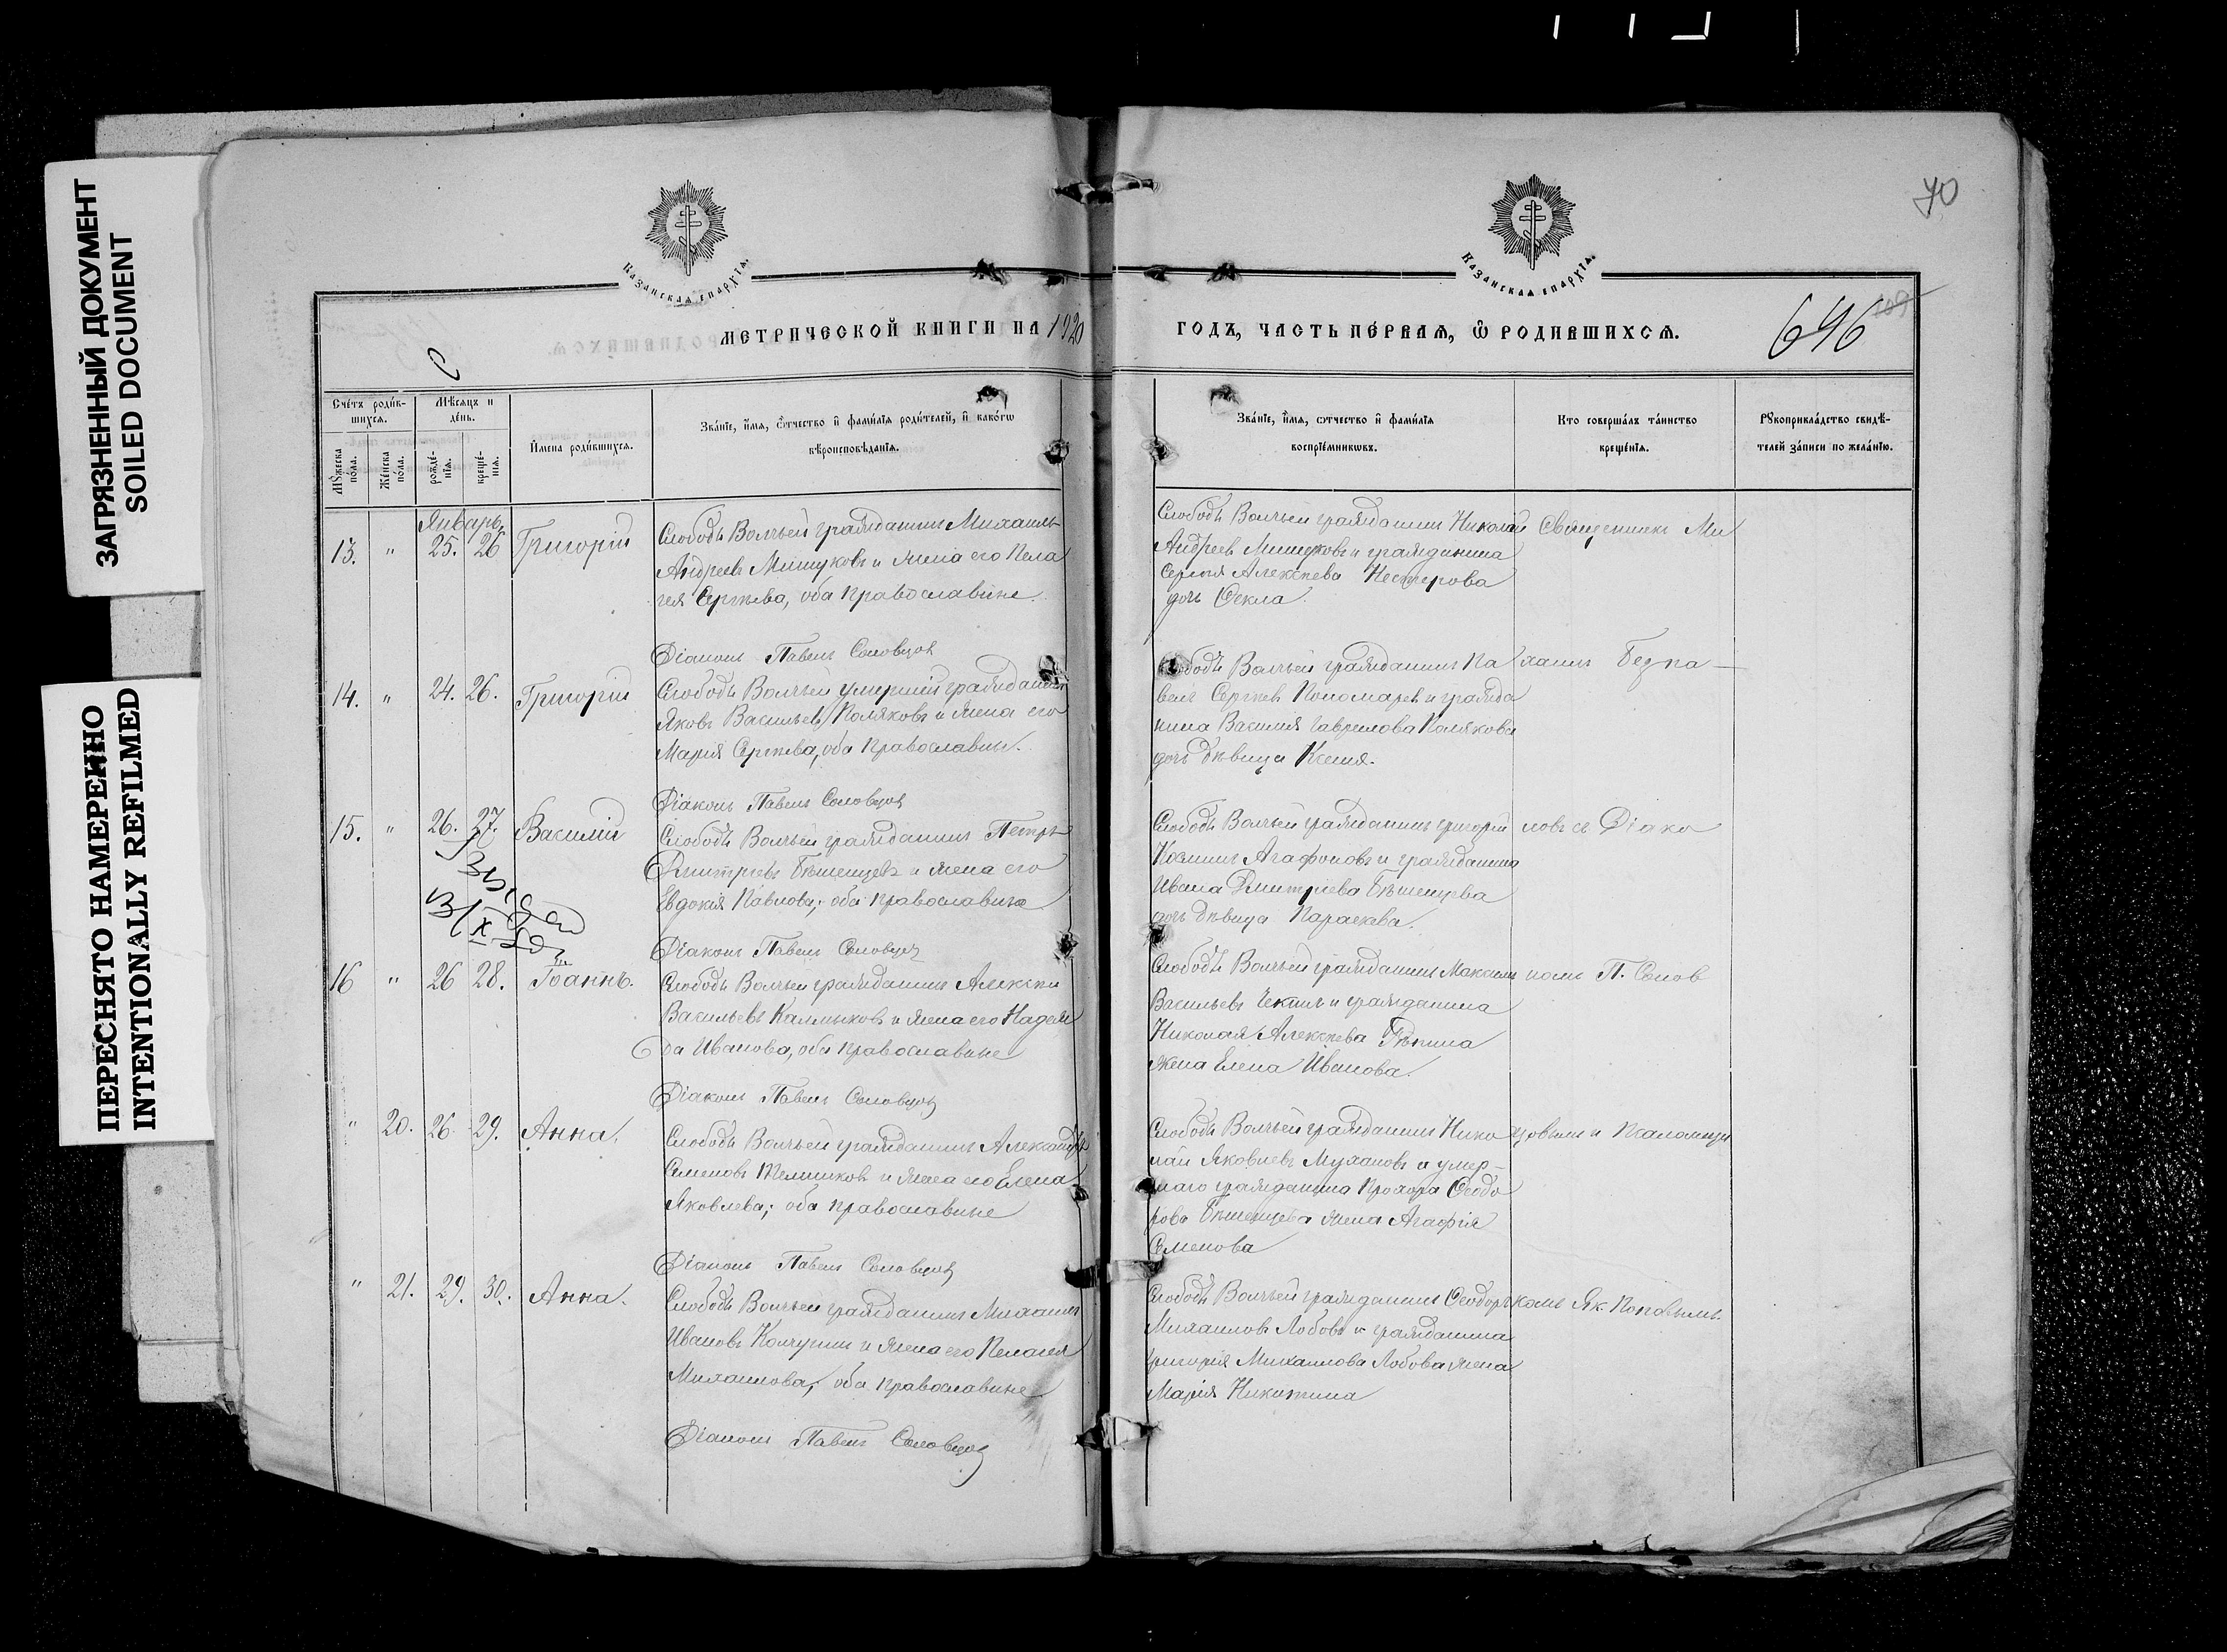 ЗАГРЯЗНЕННЫЙ ДОКУМЕНТ
SOILED DOCUMENT
ПЕРЕСНЯТО НАМЕРЕННО
INTENTIONALLY REFILMED
70
Казанская епархїѧ.
Казанская епархїѧ.
МЕТРИЧЕСКОЙ КНИГИ НА 1920
ГОДЪ, ЧАСТЬ ПЕ́РВАѦ, Ѿ РОДИВШИХСѦ.
646
109
Сче́тъ роди́вшихсѧ.
Мꙋ́жеска по́ла.
Же́нска по́ла.
Мѣ́сѧцъ и де́нь.
рожде́нїѧ.
креще́нїѧ.
И́мена роди́вшихсѧ.
Зва́нїе, и́мѧ, о́тчество и҆ фами́лїѧ роди́телей, и҆ како́гѡ
вѣроисповѣ́данїѧ.
Зва́нїе, и́мѧ, о́тчество и҆ фами́лїѧ
воспрїе́мникѡвъ.
Кто соверша́лъ та́инство
креще́нїѧ.
Рꙋкоприкла́дство свидѣ́-
телей за́писи по жела́нїю.
Январь
13. " 25. 26 Григорій
Слободы Волчьей гражданинъ Михаилъ
Андреевъ Мишуковъ и жена его Пела
гея Сергѣева, оба православные.
Діаконъ Павелъ Соловцов
Слободы Волчьей гражданинъ Николай
Андреев Мишуковъ и гражданина
Сергѣя Алексѣева Нестерова
дочь Ѳекла.
Священникъ Ми
14. " 24. 26. Григорій
Слободы Волчьей умершій гражданинъ
Яковъ Васильев Поляковъ и жена его
Марія Сергѣева, оба православные.
Діаконъ Павелъ Соловцов
Слободы Волчьей гражданинъ Па
велъ Сергѣев Пономарев и гражда
нина Василія Гаврилова Полякова
дочь дѣвица Ксенія.
хаилъ
15. " 26. 27. Василій
Слободы Волчьей гражданинъ Петръ
Дмитріевъ Бѣшенцевъ и жена его
Евдокія Павлова; оба православные
Діаконъ Павелъ Соловцов
Слободы Волчьей гражданинъ Григорій
Козминъ Агафоновъ и гражданина
Ивана Дмитріева Бѣшенцева
дочь дѣвица Параскева.
новъ съ Діако
16 " 26 28. Іоаннъ.
Слободы Волчьей гражданинъ Алексѣй
Васильевъ Калмыковъ и жена его Надеж
да Иванова, оба православные
Діаконъ Павелъ Соловцов
Слободы Волчьей гражданинъ Максимъ
Васильевъ и гражданина
Николая Алексѣева Рѣпина
жена Елена Иванова.
номъ П. Солов
" 20. 26. 29. Анна.
Слободы Волчьей гражданинъ Александръ
Семеновъ и жена его Елена
Яковлева; оба православные
Діаконъ Павелъ Соловцов
Слободы Волчьей гражданинъ Нико
лай Яковлевъ Мухановъ и умер-
шаго гражданина Прохора Ѳеодо
рова Бѣшенцева жена Агафія
Семенова
цовымъ и Псаломщи
" 21. 29. 30. Анна.
Слободы Волчьей гражданинъ Михаилъ
Ивановъ Колчуринъ и жена его Пелагея
Михаилова; оба православные
Діаконъ Павелъ Соловцов
Слободы Волчьей гражданинъ Ѳеодоръ
Михаиловъ Лобовъ и гражданина
Григорія Михаилова Лобова жена
Марія Никитина
комъ Як. Поповымъ.